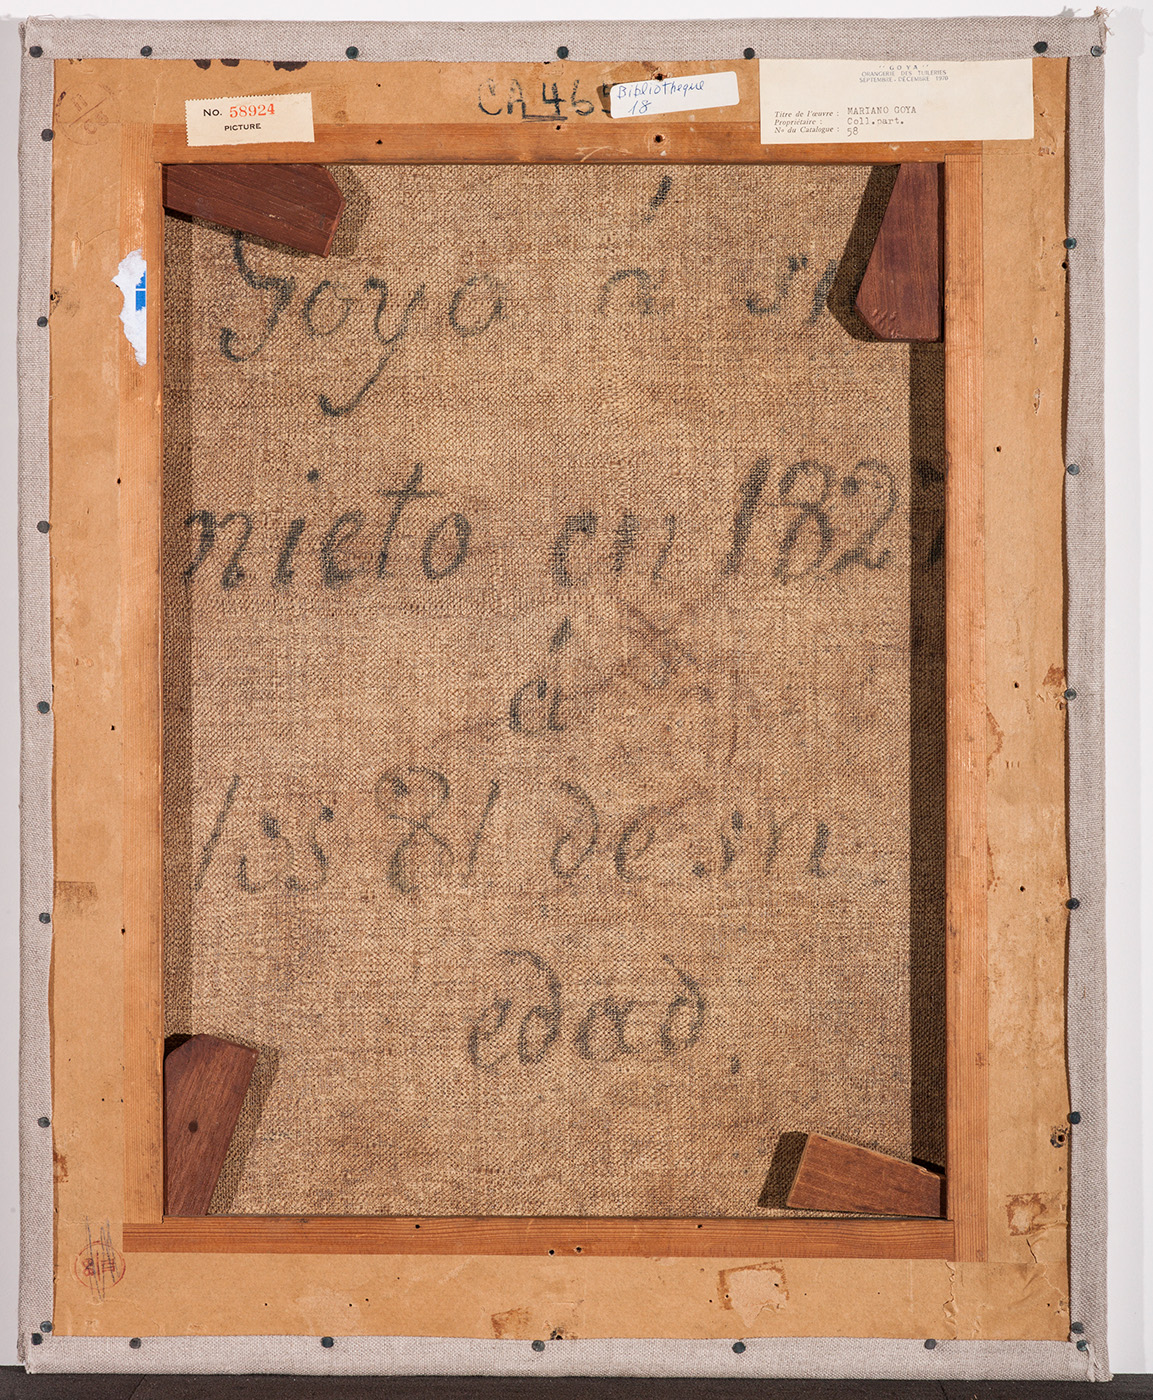 No. 58924
PICTURE
CA 46
Bibliothèque
18
"GOYA"
ORANGERIE DES TUILERIES
SEPTEMBRE-DÉCEMBRE 1970
Titre de l'œuvre : MARIANO GOYA
Propriétaire : Coll.part.
No du Catalogue : 58
Goya á su
nieto en 182
á
los 81 de su
edad.